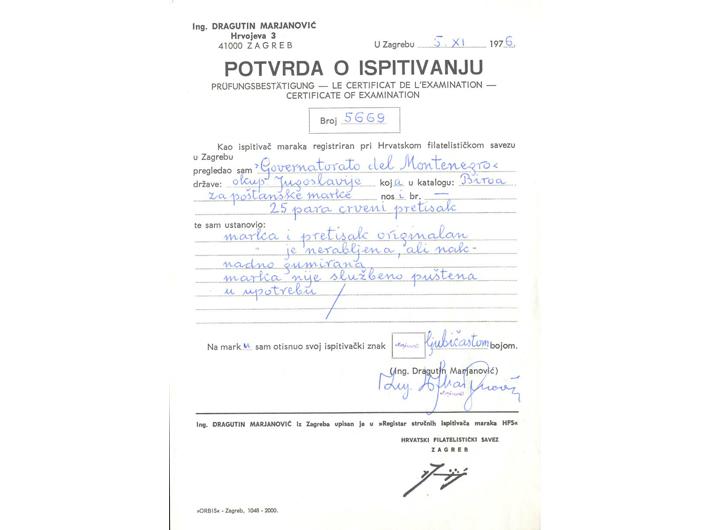 Ing. DRAGUTIN MARJANOVIĆ
Hrvojeva 3
41000 ZAGREB
U Zagrebu 5. XI 1976.
POTVRDA O ISPITIVANJU
PRÜFUNGSBESTÄTIGUNG — LE CERTIFICAT DE L'EXAMINATION —
CERTIFICATE OF EXAMINATION
Broj 5669
Kao ispitivač maraka registriran pri Hrvatskom filatelističkom savezu
u Zagrebu
pregledao sam »Governatorato del Montenegro«
države: okup. Jugoslavije koja u katalogu:
za poštanske marke nosi br. —
25 para crveni pretisak
te sam ustanovio:
marka i pretisak originalan
" je nerabljena, ali nak-
nadno gumirana.
marka nije službeno puštena
u upotrebu
Na mark sam otisnuo svoj ispitivački znak ljubičastom bojom.
(Ing. Dragutin Marjanović)
Ing. DRAGUTIN MARJANOVIĆ iz Zagreba upisan je u »Registar stručnih ispitivača maraka HFS«
HRVATSKI FILATELISTIČKI SAVEZ
ZAGREB
»ORBIS« - Zagreb, 1048 - 2000.